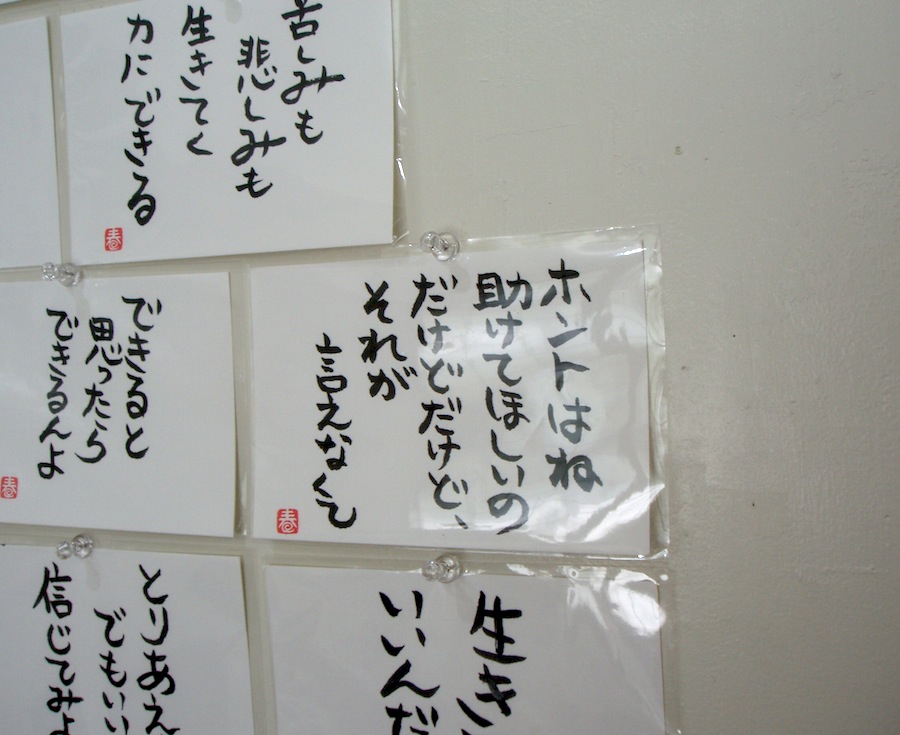 苦しみも
悲しみも
生きてく
力にできる
春
ホントはね
助けてほしいの
だけどだけど、
それが
言えなくて
春
できると
思ったら
できるんよ
春
生き
いいんだ
とりあえ
でもいい
信じてみよ